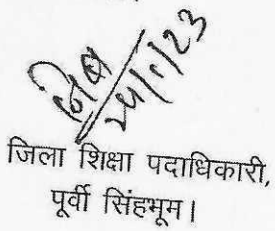 24/1/23
जिला शिक्षा पदाधिकारी,
पूर्वी सिंहभूम।